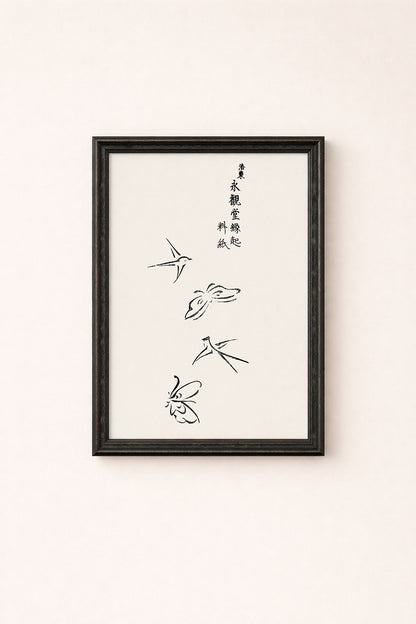 洛東
永觀堂縁起
料紙